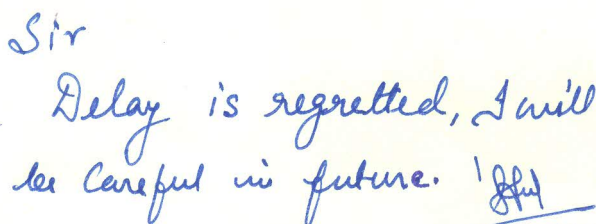 Sir
Delay is regretted, I will
be careful in future.